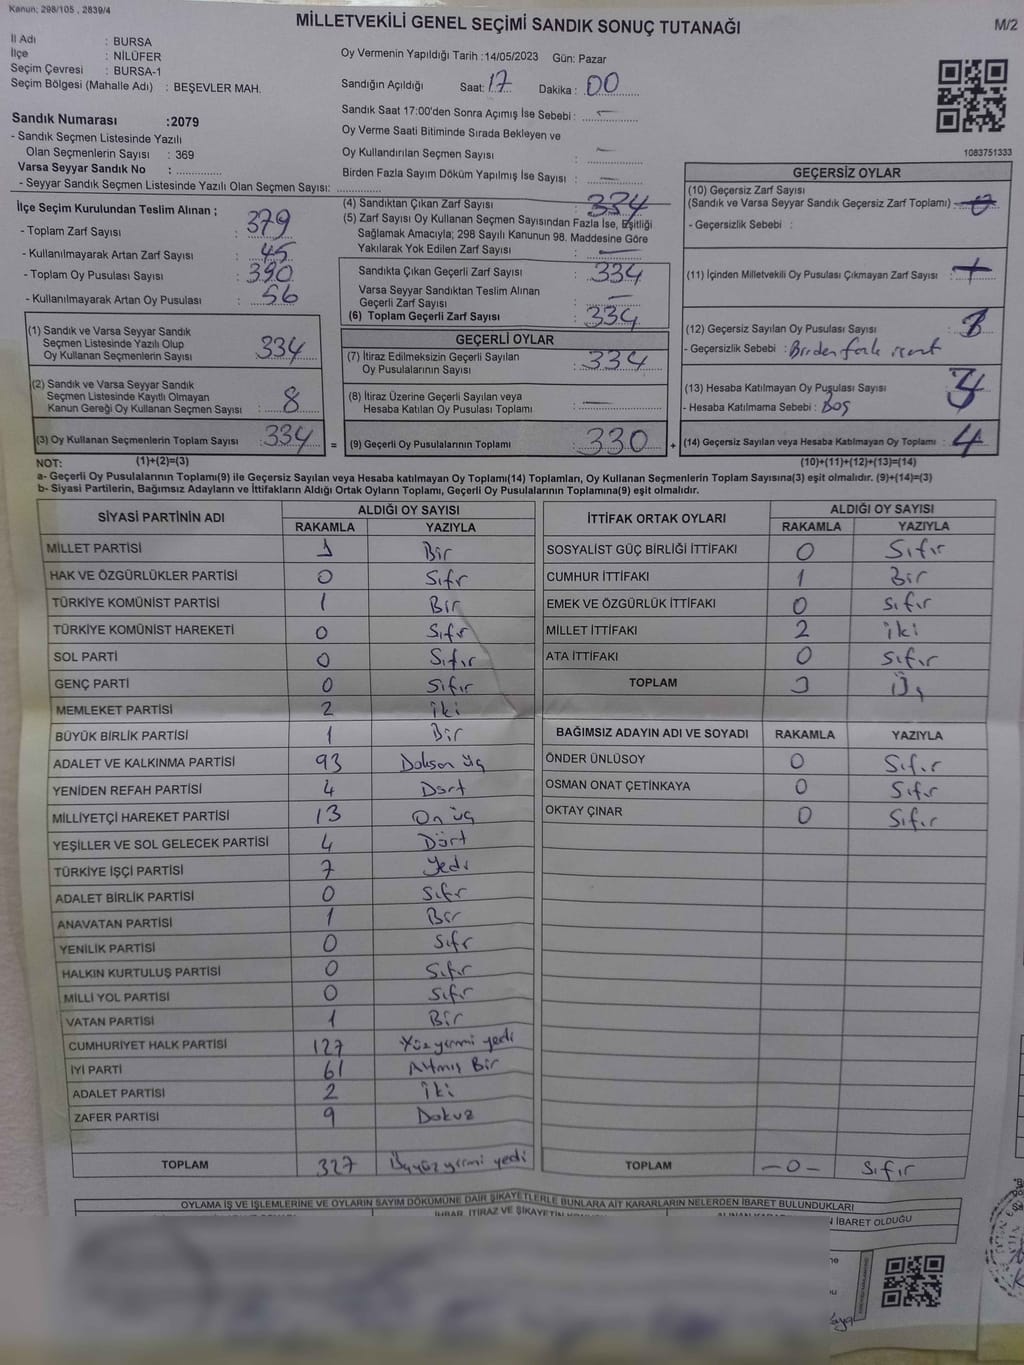 Kanun: 298/105 , 2839/4
MİLLETVEKİLİ GENEL SEÇİMİ SANDIK SONUÇ TUTANAĞI
M/2
İl Adı : BURSA
İlçe : NİLÜFER
Seçim Çevresi : BURSA-1
Seçim Bölgesi (Mahalle Adı) : BEŞEVLER MAH.
Sandık Numarası :2079
- Sandık Seçmen Listesinde Yazılı
Olan Seçmenlerin Sayısı : 369
Varsa Seyyar Sandık No :
- Seyyar Sandık Seçmen Listesinde Yazılı Olan Seçmen Sayısı:
Oy Vermenin Yapıldığı Tarih :14/05/2023 Gün: Pazar
Sandığın Açıldığı Saat: 17 Dakika : 00
Sandık Saat 17:00'den Sonra Açımış İse Sebebi : -
Oy Verme Saati Bitiminde Sırada Bekleyen ve
Oy Kullandırılan Seçmen Sayısı : -
Birden Fazla Sayım Döküm Yapılmış İse Sayısı : -
1083751333
İlçe Seçim Kurulundan Teslim Alınan ;
- Toplam Zarf Sayısı : 379
- Kullanılmayarak Artan Zarf Sayısı : 45
- Toplam Oy Pusulası Sayısı : 390
- Kullanılmayarak Artan Oy Pusulası : 56
(1) Sandık ve Varsa Seyyar Sandık
Seçmen Listesinde Yazılı Olup
Oy Kullanan Seçmenlerin Sayısı : 334
(2) Sandık ve Varsa Seyyar Sandık
Seçmen Listesinde Kayıtlı Olmayan
Kanun Gereği Oy Kullanan Seçmen Sayısı : 8
(3) Oy Kullanan Seçmenlerin Toplam Sayısı : 334
(1)+(2)=(3)
(4) Sandıktan Çıkan Zarf Sayısı : 334
(5) Zarf Sayısı Oy Kullanan Seçmen Sayısından Fazla İse, Eşitliği
Sağlamak Amacıyla; 298 Sayılı Kanunun 98. Maddesine Göre
Yakılarak Yok Edilen Zarf Sayısı : -
Sandıkta Çıkan Geçerli Zarf Sayısı : 334
Varsa Seyyar Sandıktan Teslim Alınan
Geçerli Zarf Sayısı : -
(6) Toplam Geçerli Zarf Sayısı : 334
GEÇERLİ OYLAR
(7) İtiraz Edilmeksizin Geçerli Sayılan
Oy Pusulalarının Sayısı : 334
(8) İtiraz Üzerine Geçerli Sayılan veya
Hesaba Katılan Oy Pusulası Toplamı : -
= (9) Geçerli Oy Pusulalarının Toplamı : 330
GEÇERSİZ OYLAR
(10) Geçersiz Zarf Sayısı
(Sandık ve Varsa Seyyar Sandık Geçersiz Zarf Toplamı) - 0
- Geçersizlik Sebebi :
(11) İçinden Milletvekili Oy Pusulası Çıkmayan Zarf Sayısı :
(12) Geçersiz Sayılan Oy Pusulası Sayısı :
- Geçersizlik Sebebi : Birden fazla
(13) Hesaba Katılmayan Oy Pusulası Sayısı :
- Hesaba Katılmama Sebebi : Boş
+ (14) Geçersiz Sayılan veya Hesaba Katılmayan Oy Toplamı : 4
(10)+(11)+(12)+(13)=(14)
NOT:
a- Geçerli Oy Pusulalarının Toplamı(9) ile Geçersiz Sayılan veya Hesaba katılmayan Oy Toplamı(14) Toplamları, Oy Kullanan Seçmenlerin Toplam Sayısına(3) eşit olmalıdır. (9)+(14)=(3)
b- Siyasi Partilerin, Bağımsız Adayların ve İttifakların Aldığı Ortak Oyların Toplamı, Geçerli Oy Pusulalarının Toplamına(9) eşit olmalıdır.
SİYASİ PARTİNİN ADI ALDIĞI OY SAYISI
RAKAMLA YAZIYLA
MİLLET PARTİSİ 1 Bir
HAK VE ÖZGÜRLÜKLER PARTİSİ 0 Sıfır
TÜRKİYE KOMÜNİST PARTİSİ 1 Bir
TÜRKİYE KOMÜNİST HAREKETİ 0 Sıfır
SOL PARTİ 0 Sıfır
GENÇ PARTİ 0 Sıfır
MEMLEKET PARTİSİ 2 iki
BÜYÜK BİRLİK PARTİSİ 1 Bir
ADALET VE KALKINMA PARTİSİ 93 Doksan üç
YENİDEN REFAH PARTİSİ 4 Dört
MİLLİYETÇİ HAREKET PARTİSİ 13 On üç
YEŞİLLER VE SOL GELECEK PARTİSİ 4 Dört
TÜRKİYE İŞÇİ PARTİSİ 7 Yedi
ADALET BİRLİK PARTİSİ 0 Sıfır
ANAVATAN PARTİSİ 1 Bir
YENİLİK PARTİSİ 0 Sıfır
HALKIN KURTULUŞ PARTİSİ 0 Sıfır
MİLLİ YOL PARTİSİ 0 Sıfır
VATAN PARTİSİ 1 Bir
CUMHURİYET HALK PARTİSİ 127 Yüz yirmi yedi
İYİ PARTİ 61 Altmış Bir
ADALET PARTİSİ 2 İki
ZAFER PARTİSİ 9 Dokuz
TOPLAM 327 Üçyüz yirmi yedi
İTTİFAK ORTAK OYLARI ALDIĞI OY SAYISI
RAKAMLA YAZIYLA
SOSYALİST GÜÇ BİRLİĞİ İTTİFAKI 0 Sıfır
CUMHUR İTTİFAKI 1 Bir
EMEK VE ÖZGÜRLÜK İTTİFAKI 0 Sıfır
MİLLET İTTİFAKI 2 iki
ATA İTTİFAKI 0 Sıfır
TOPLAM 3 Üç
BAĞIMSIZ ADAYIN ADI VE SOYADI RAKAMLA YAZIYLA
ÖNDER ÜNLÜSOY 0 Sıfır
OSMAN ONAT ÇETİNKAYA 0 Sıfır
OKTAY ÇINAR 0 Sıfır
TOPLAM -0- Sıfır
OYLAMA İŞ VE İŞLEMLERİNE VE OYLARIN SAYIM DÖKÜMÜNE DAİR ŞİKAYETLERLE BUNLARA AİT KARARLARIN NELERDEN İBARET BULUNDUKLARI
İHBAR, İTİRAZ VE ŞİKAYETİN
İBARET OLDUĞU